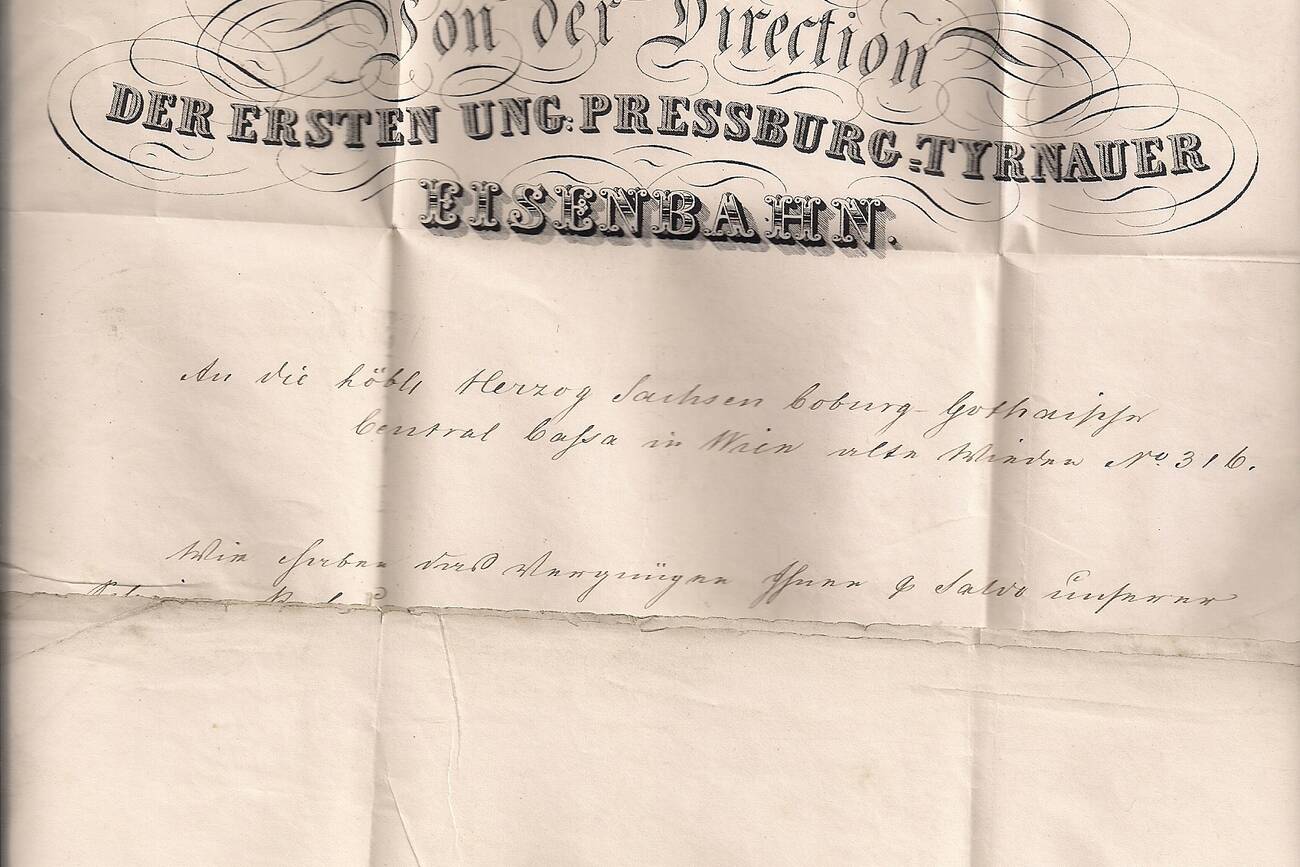 Von der Direction
DER ERSTEN UNG: PRESSBURG=TYRNAUER
EISENBAHN.
An die löbl Herzog Sachsen Coburg-Gothaische
Central Cassa in Wien alte Wieden No. 316.
Wir haben das Vergnügen Ihnen Saldo unserer